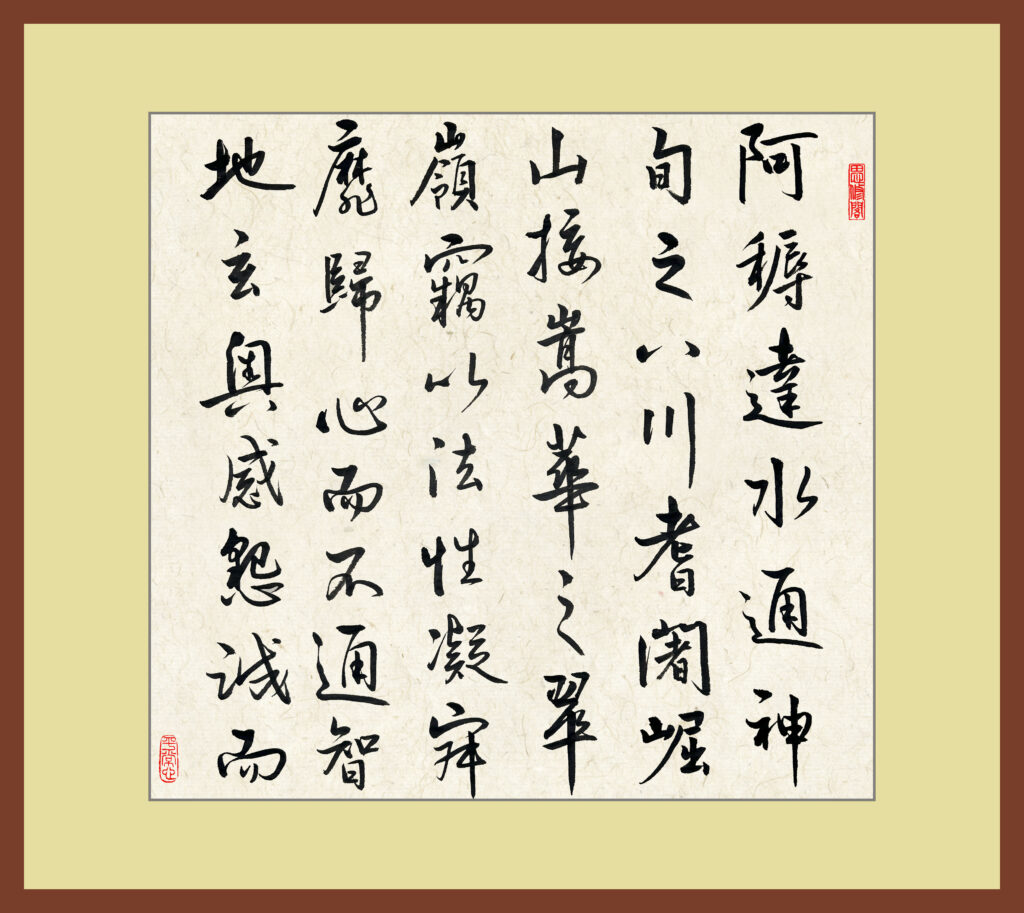 阿耨達水通神
旬之八川耆闍崛
山接嵩華之翠
嶺竊以法性凝寂
靡歸心而不通智
地玄奧感懇誠而
平常心